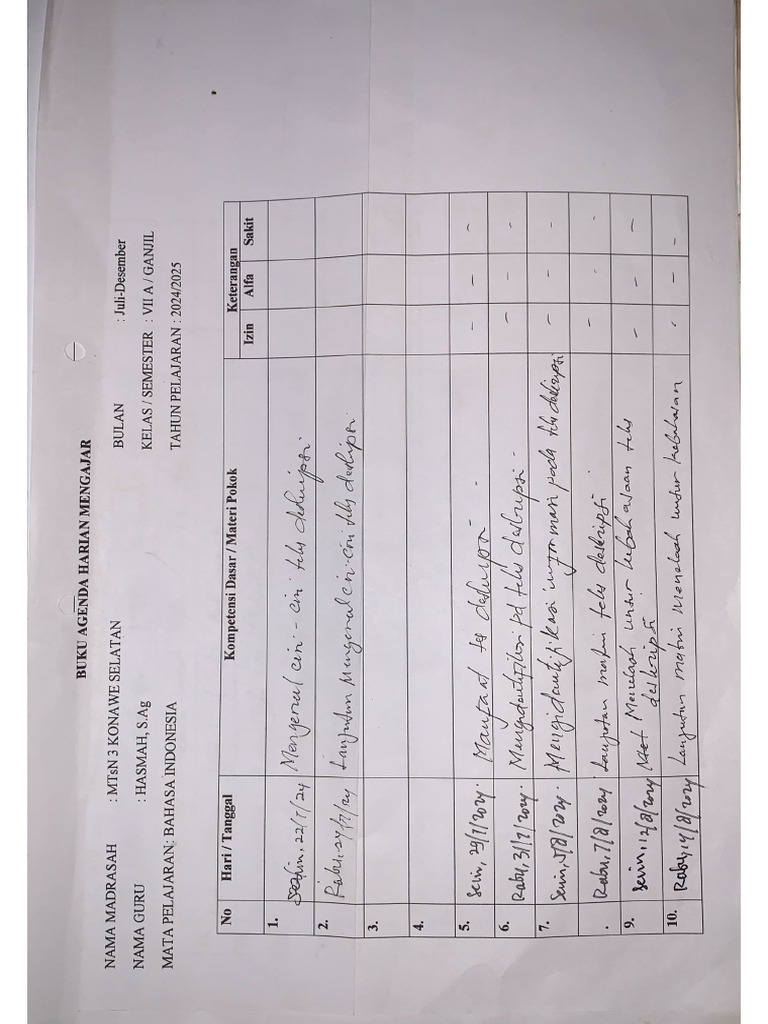 BUKU AGENDA HARIAN MENGAJAR
NAMA MADRASAH : MTsN 3 KONAWE SELATAN BULAN : Juli-Desember
NAMA GURU : HASMAH, S.Ag KELAS / SEMESTER : VII A / GANJIL
MATA PELAJARAN: BAHASA INDONESIA TAHUN PELAJARAN : 2024/2025
No Hari / Tanggal Kompetensi Dasar / Materi Pokok Keterangan
Izin Alfa Sakit
1. Senin, 22/7/24 Mengenal ciri - ciri teks deskripsi
2. Rabu, 24/7/24 Lanjutan Mengenal ciri-ciri teks deskripsi
3.
4.
5. Senin, 29/7/2024. Manfaat teks deskripsi - - - -
6. Rabu, 31/7/2024. Mengidentifikasi pd teks deskripsi - - - -
7. Senin, 5/8/2024. Mengidentifikasi informasi pada teks deskripsi - - -
. Rabu, 7/8/2024 Lanjutan materi teks deskripsi - - -
9. Senin, 12/8/2024 Menelaah unsur kebahasaan teks - - -
deskripsi
10. Rabu, 14/8/2024 Lanjutan materi Menelaah unsur kebahasaan - - -